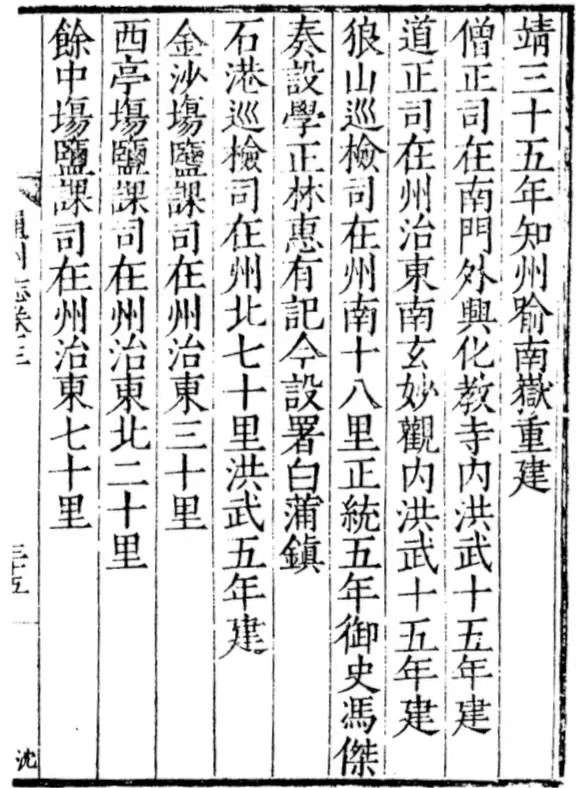 靖三十五年知州喻南嶽重建
僧正司在南門外興化教寺内洪武十五年建
道正司在州治東南玄妙觀内洪武十五年建
狼山巡檢司在州南十八里正統五年御史馮傑
奏設學正林惠有記今設署白蒲鎮
石港巡檢司在州北七十里洪武五年建
金沙塲鹽課司在州治東三十里
西亭塲鹽課司在州治東北二十里
餘中塲鹽課司在州治東七十里
通州志卷三
三十五
沈